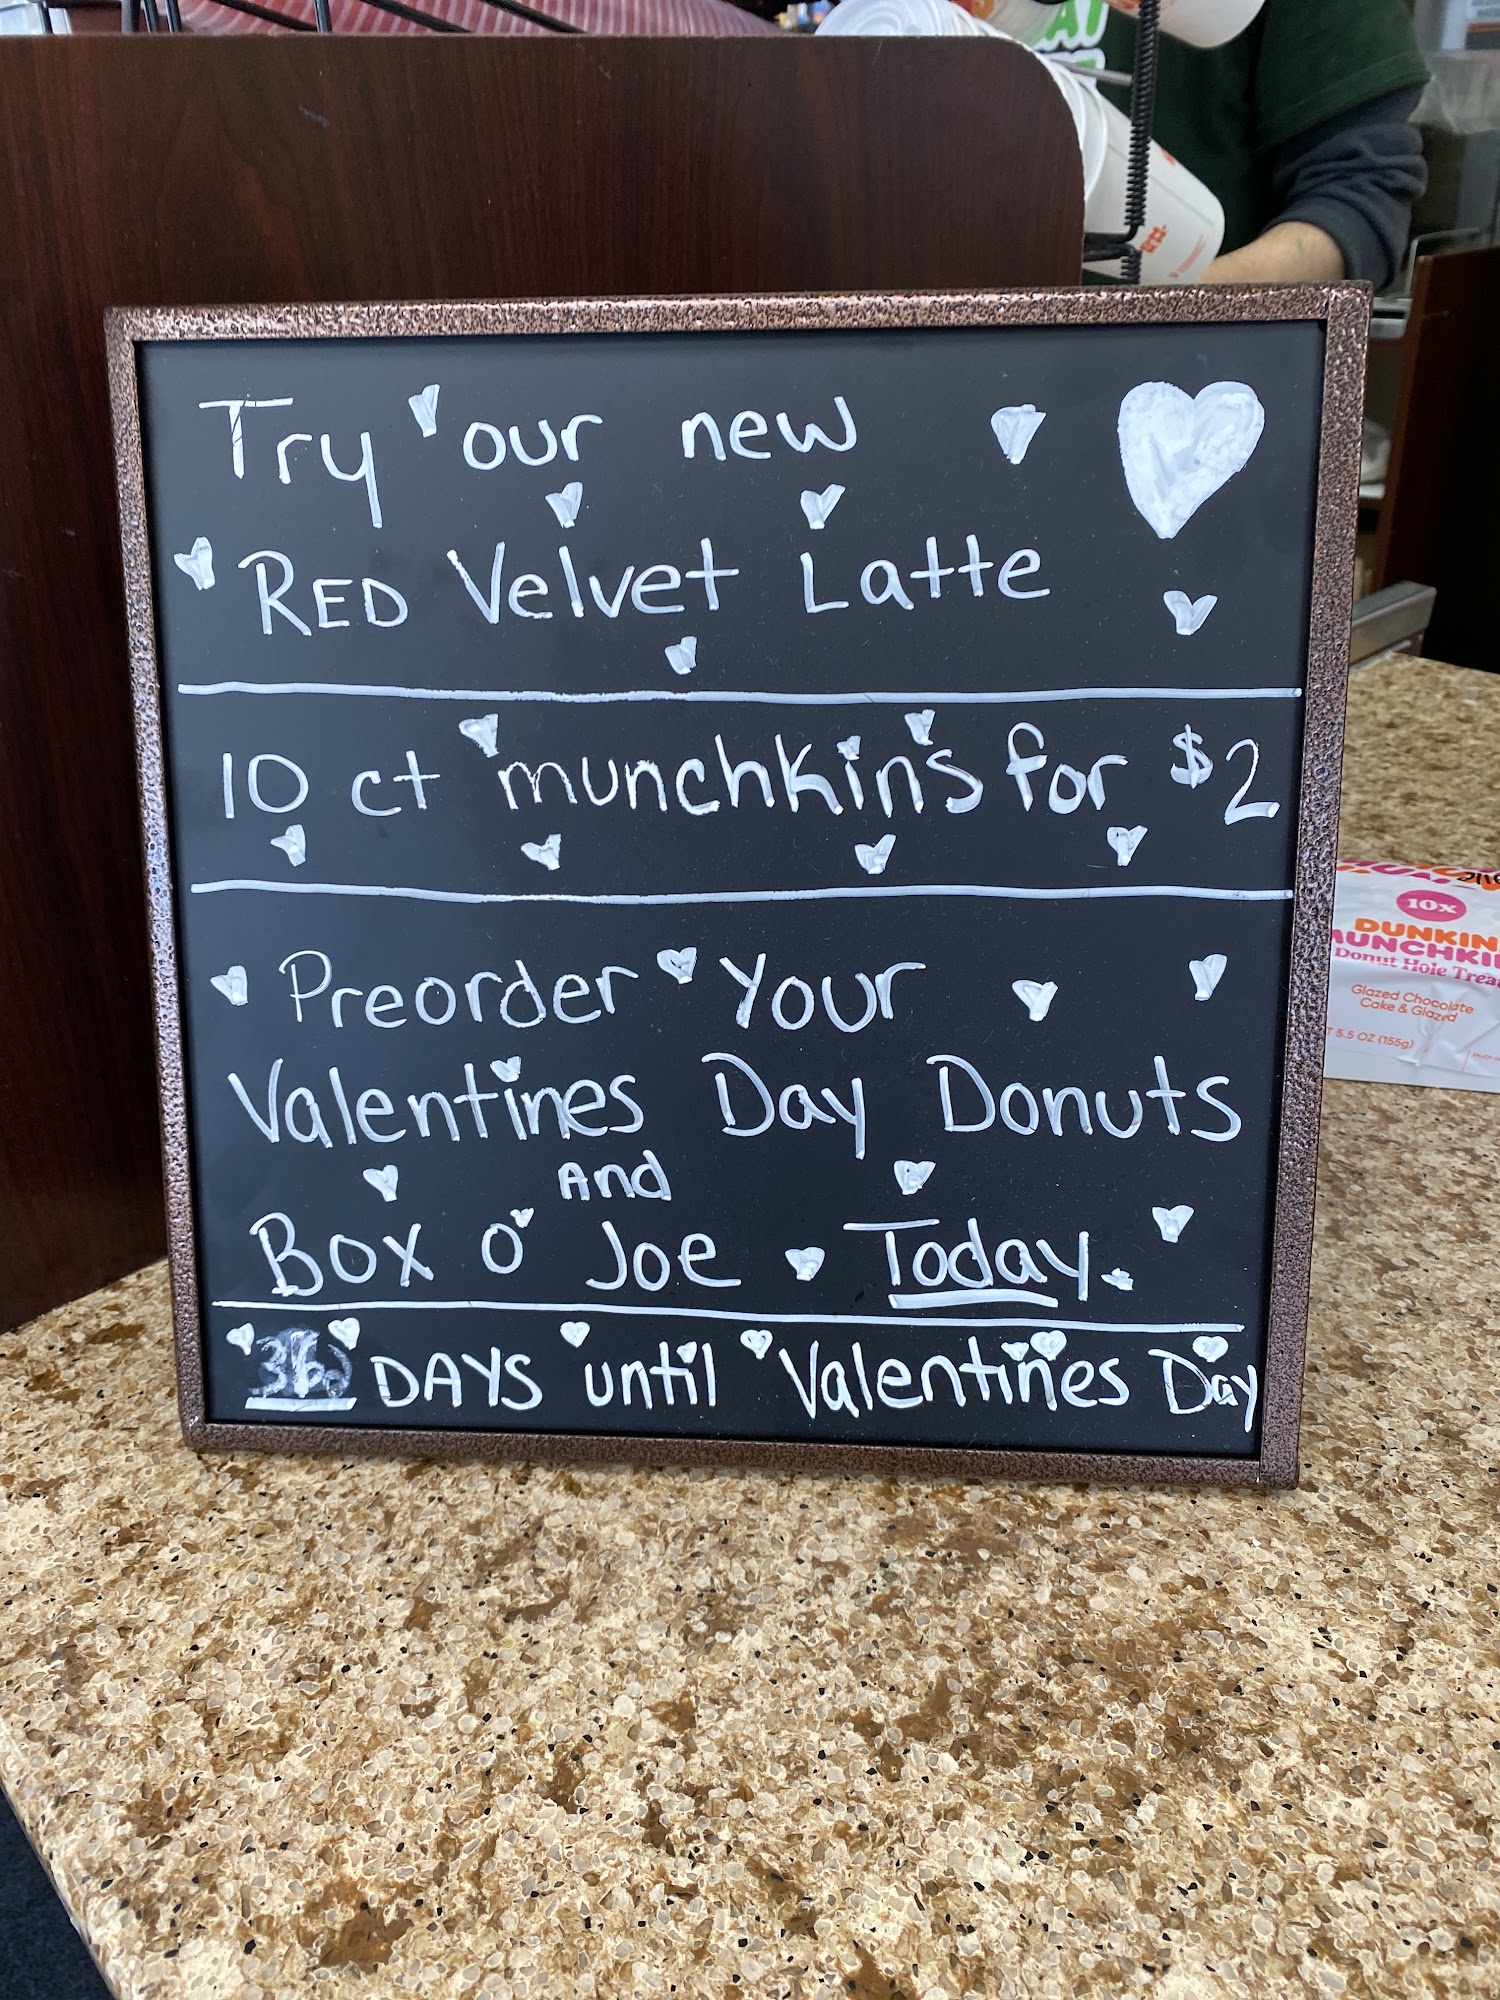 Try our new
RED Velvet Latte
10 ct munchkins for $2
Preorder Your
Valentines Day Donuts
And
Box O' Joe Today.
DAYS until Valentines Day
10x
DUNKIN
Donut Hole
Glazed Chocolate
Cake & Glazed
5.5 OZ (155g)